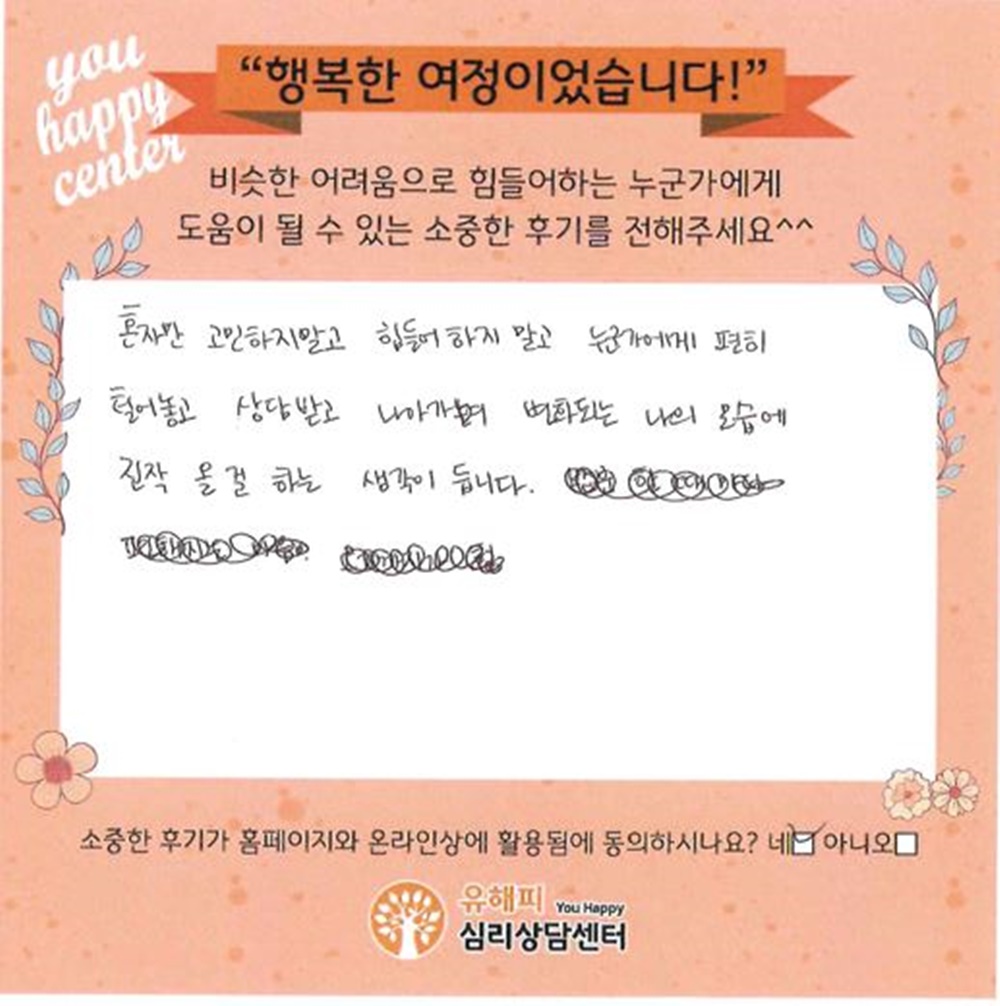 you
happy
center
“행복한 여정이었습니다!”
비슷한 어려움으로 힘들어하는 누군가에게
도움이 될 수 있는 소중한 후기를 전해주세요^^
혼자만 고민하지말고 힘들어 하지 말고 누군가에게 편히
털어놓고 상담받고 나아가며 변화되는 나의 모습에
진작 올 걸 하는 생각이 듭니다.
소중한 후기가 홈페이지와 온라인상에 활용됨에 동의하시나요? 네 아니오
유해피 You Happy
심리상담센터